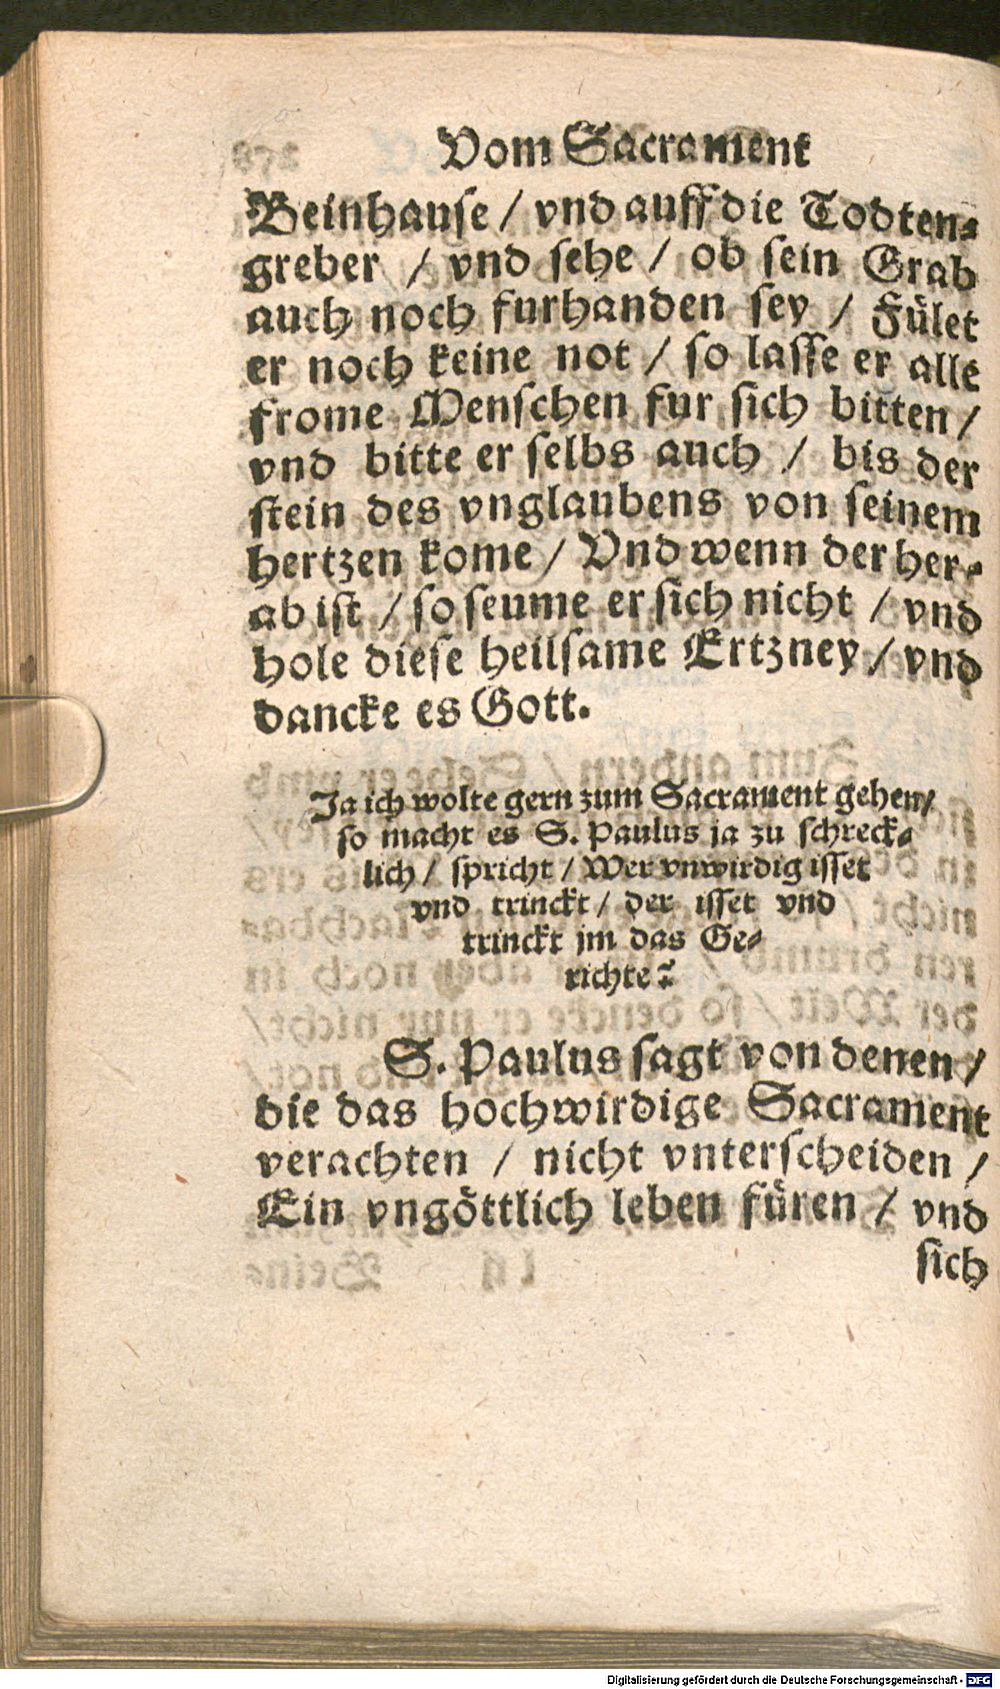 Vom Sacrament
Beinhause / vnd auff die Todten-
greber / vnd sehe / ob sein Grab
auch noch furhanden sey / Fület
er noch keine not / so lasse er alle
frome Menschen fur sich bitten /
vnd bitte er selbs auch / bis der
stein des vnglaubens von seinem
hertzen kome / Vnd wenn der her-
ab ist / so seume er sich nicht / vnd
hole diese heilsame Ertzney / vnd
dancke es Gott.
Ja ich wolte gern zum Sacrament gehen /
so macht es S. Paulus ja zu schreck-
lich / spricht / Wer vnwirdig isset
vnd trinckt / der isset vnd
trinckt jm das Ge-
richte?
S. Paulus sagt von denen /
die das hochwirdige Sacrament
verachten / nicht vnterscheiden /
Ein vngöttlich leben füren / vnd
sich
Digitalisierung gefördert durch die Deutsche Forschungsgemeinschaft - DFG